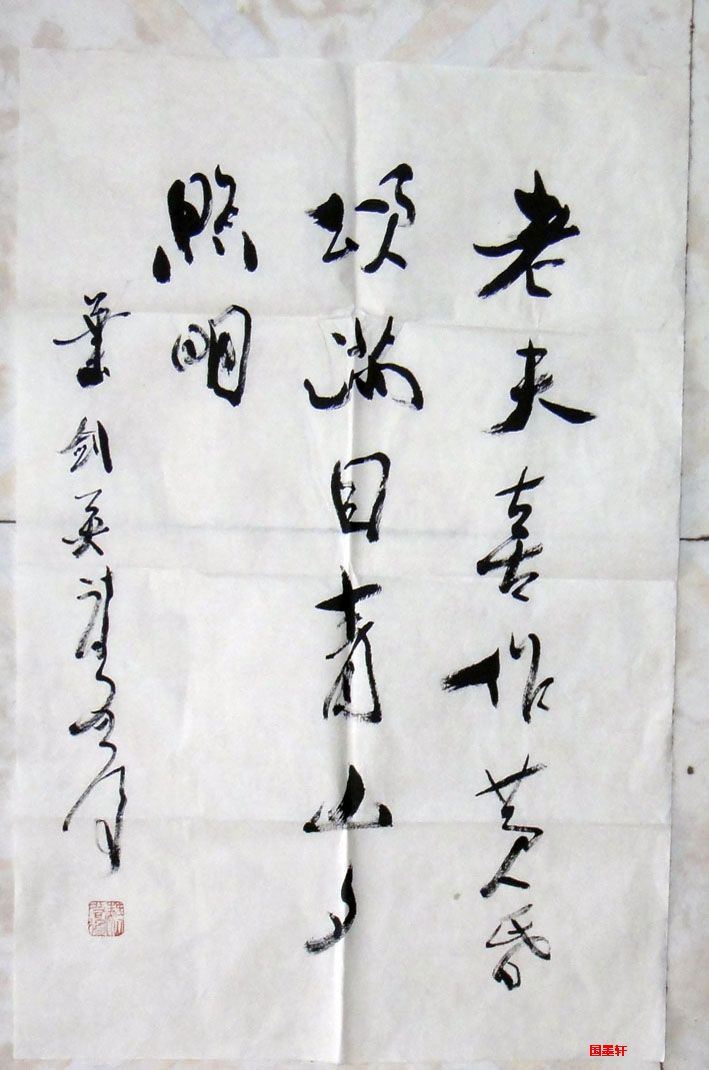 老夫喜作黄昏
颂满目青山夕
照明
葉剑英诗
国墨轩